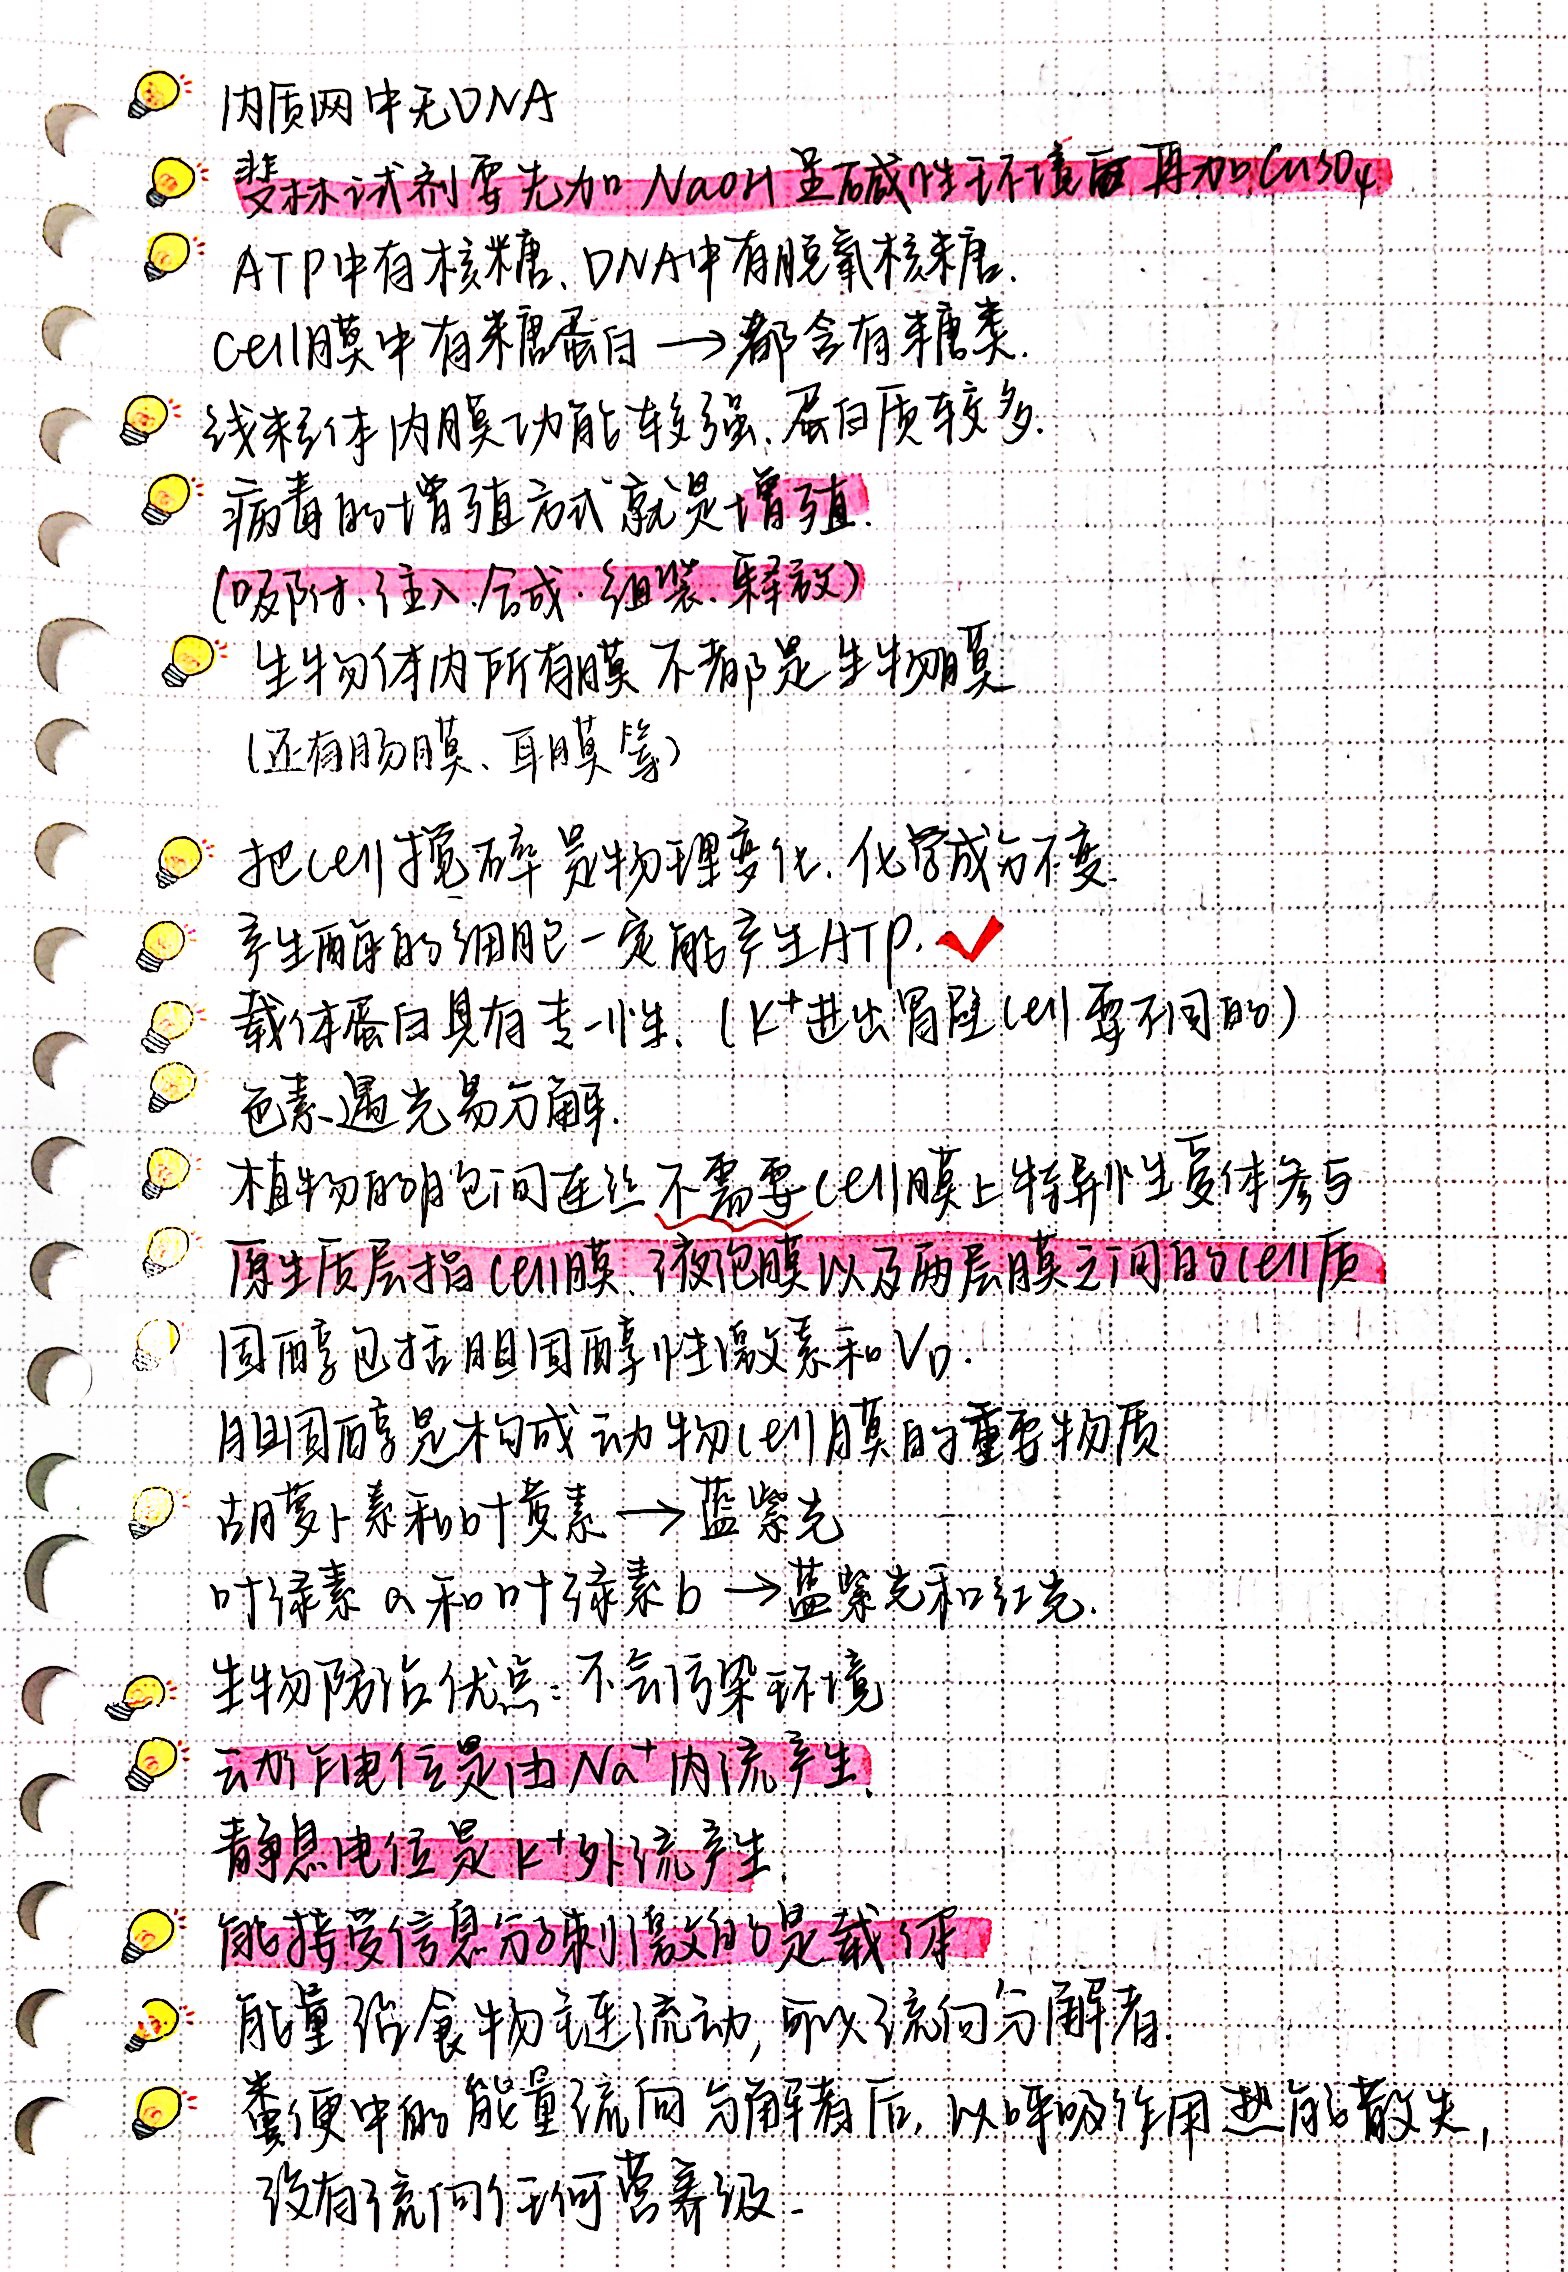 内质网中无DNA
斐林试剂要先加NaOH呈碱性环境再加CuSO₄
ATP中有核糖、DNA中有脱氧核糖.
cell膜中有糖蛋白→都含有糖类.
线粒体内膜功能较强、蛋白质较多.
病毒的增殖方式就是增殖.
(吸附、注入、合成、组装、释放)
生物体内所有膜不都是生物膜
(还有肠膜、耳膜等)
把cell搅碎是物理变化、化学成分不变.
产生酶的细胞一定能产生ATP. ✓
载体蛋白具有专一性.(K⁺进出胃壁cell要不同的)
色素遇光易分解.
植物的胞间连丝不需要cell膜上特异性受体参与
原生质层指cell膜、液泡膜以及两层膜之间的cell质
固醇包括胆固醇性激素和V_D.
胆固醇是构成动物cell膜的重要物质
胡萝卜素和叶黄素→蓝紫光
叶绿素a和叶绿素b→蓝紫光和红光.
生物防治优点:不会污染环境
动作电位是由Na⁺内流产生.
静息电位是K⁺外流产生.
能接受信息分子刺激的是载体
能量沿食物链流动,可以流向分解者.
粪便中的能量流向分解者后,以呼吸作用热能散失,
没有流向任何营养级.